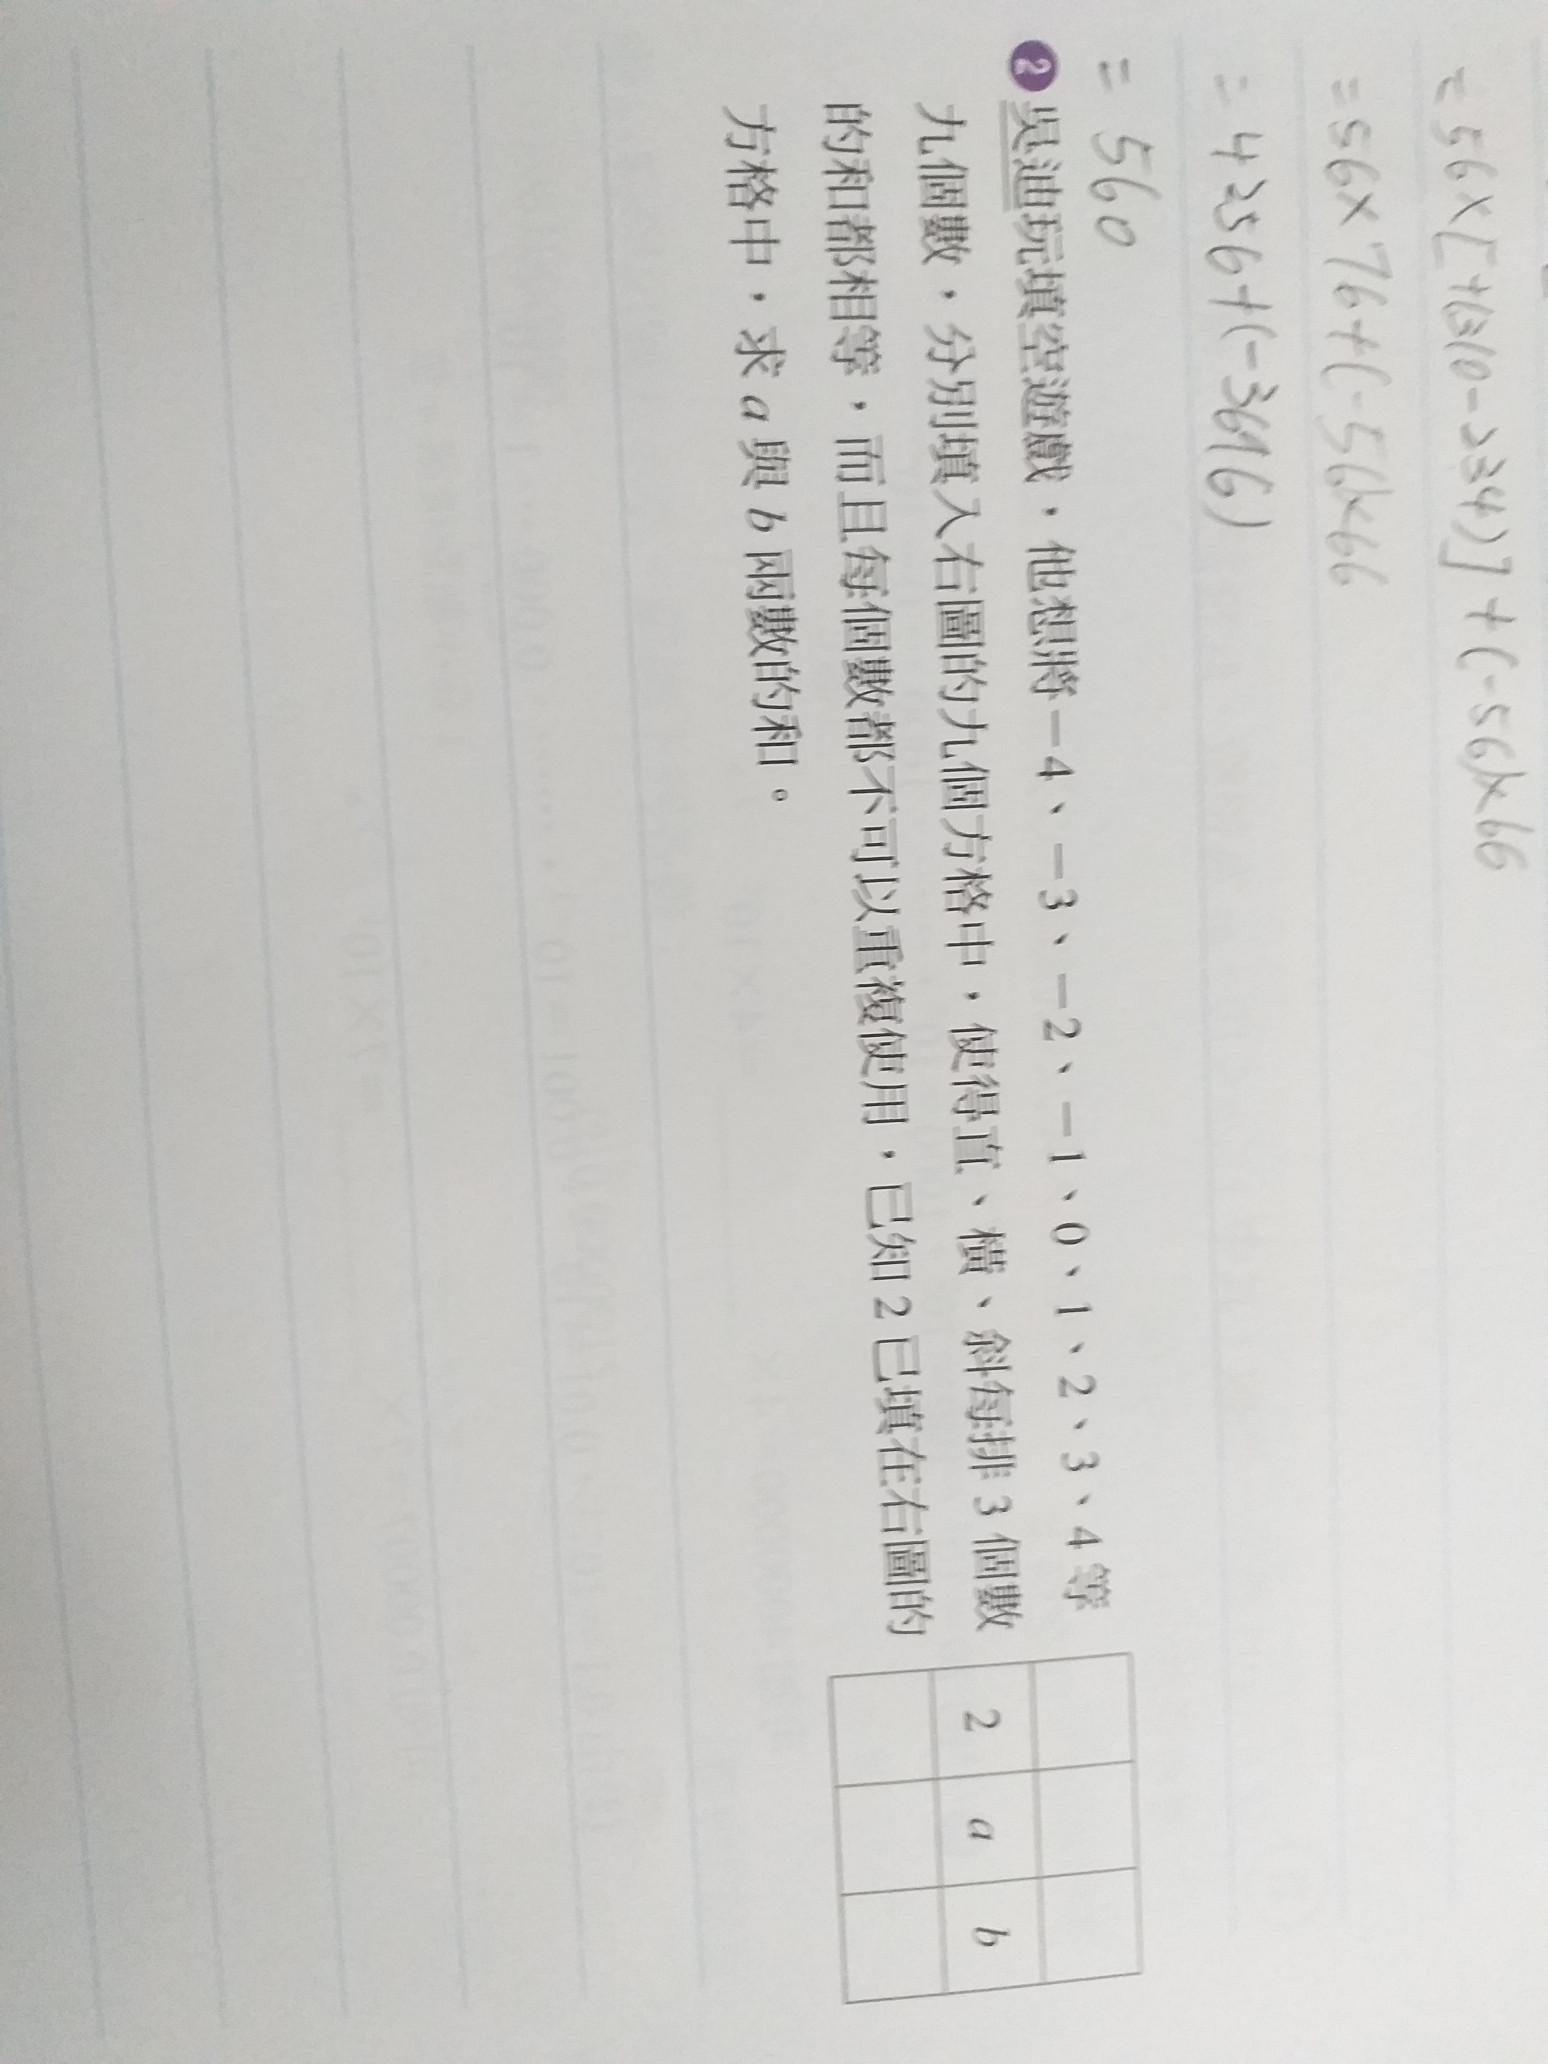 = 56×[76310-234)]+(-56)×66
= 56×76+(-56)×66
= 4256+(-3696)
= 560
2 吳迪玩填空遊戲，他想將－4、－3、－2、－1、0、1、2、3、4等
九個數，分別填入右圖的九個方格中，使得直、橫、斜每排3個數
的和都相等，而且每個數都不可以重複使用，已知2已填在右圖的
方格中，求a與b兩數的和。
2 a b